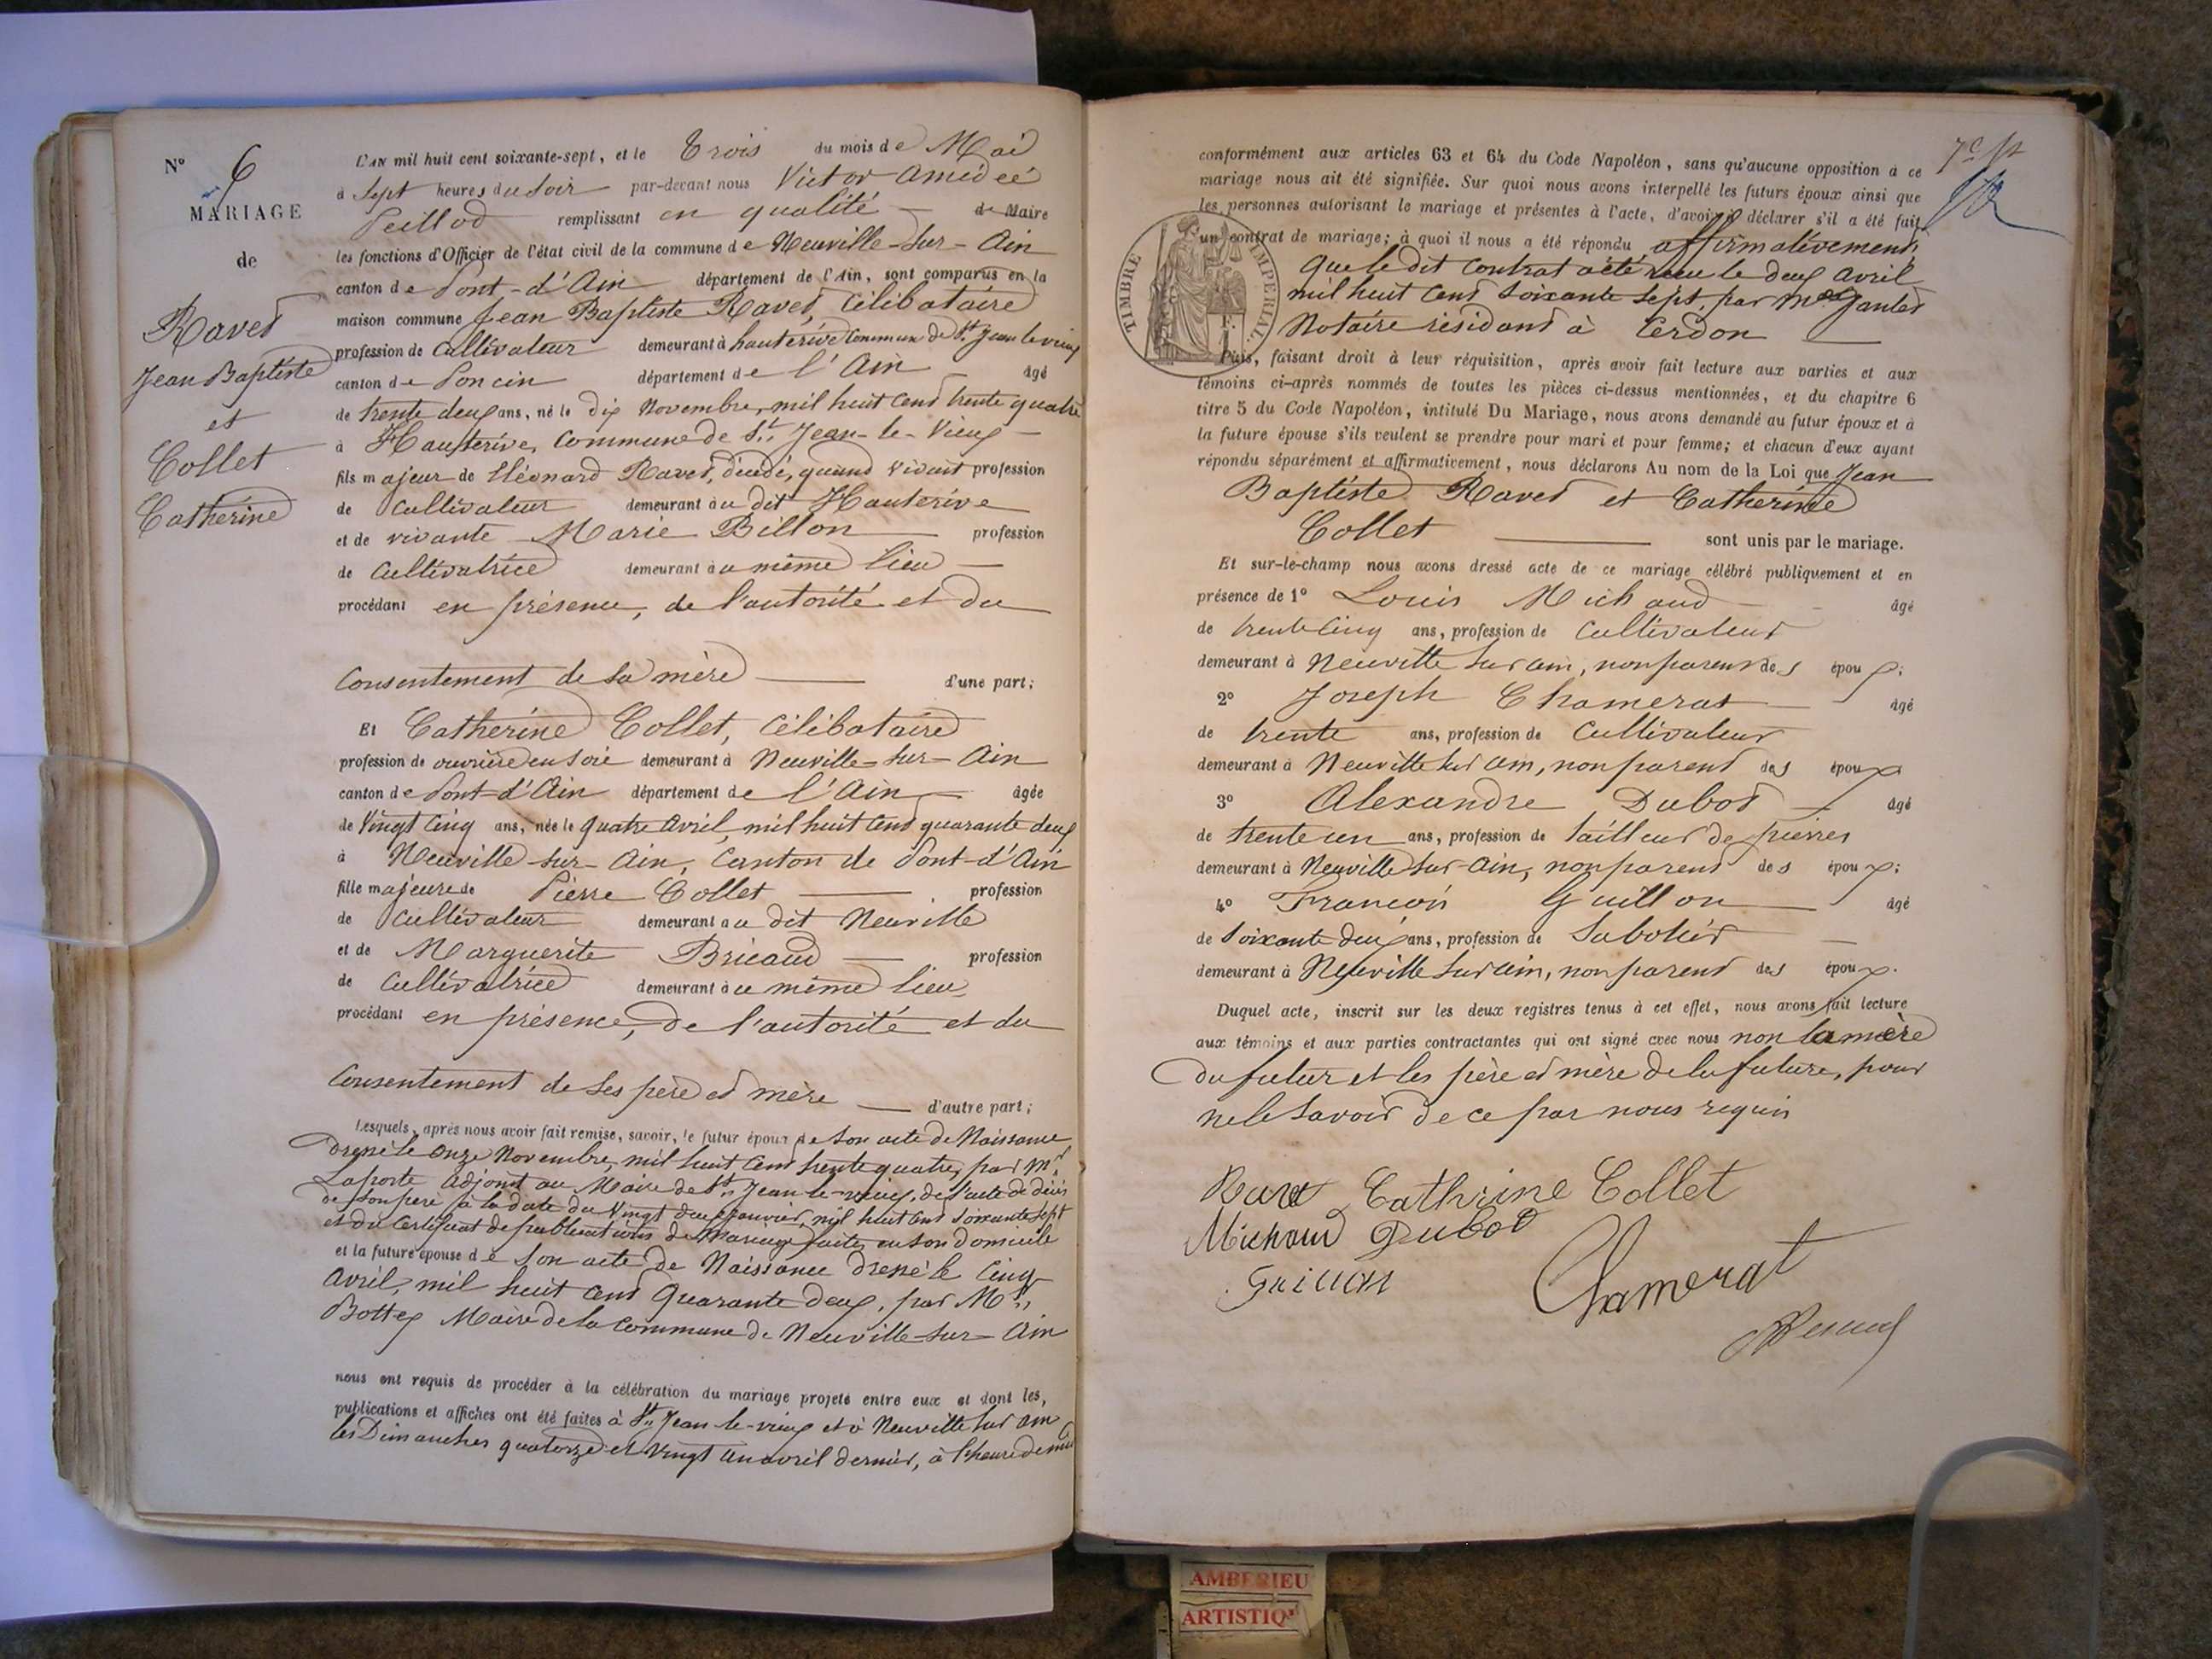 N° 6
MARIAGE
de
Ravet
Jean Baptiste
et
Collet
Catherine
L'AN mil huit cent soixante-sept, et le Trois du mois de Mai
à Sept heures du Soir par-devant nous Victor Amédée
Peillod remplissant en qualité de Maire
les fonctions d'Officier de l'état civil de la commune de Neuville-Sur-Ain
canton de Pont-d'Ain département de l'Ain, sont comparus en la
maison commune Jean Baptiste Ravet, Célibataire
profession de Cultivateur demeurant à hauterive Commune de St. Jean le vieux
canton de Poncin département de l'Ain âgé
de trente deux ans, né le dix Novembre, mil huit Cent trente quatre
à Hauterive, Commune de St. Jean-le-Vieux
fils majeur de Héonard Ravet, décédé, quand vivait profession
de Cultivateur demeurant au dit Hauterive
et de vivante Marie Billon profession
de Cultivatrice demeurant au même lieu
procédant en présence, de l'autorité et du
Consentement de sa mère d'une part;
Et Catherine Collet, Célibataire
profession de ouvrière en soie demeurant à Neuville-Sur-Ain
canton de Pont-d'Ain département de l'Ain âgée
de Vingt Cinq ans, née le quatre Avril, mil huit Cent quarante deux
à Neuville-sur-Ain, Canton de Pont-d'Ain
fille majeure de Pierre Collet profession
de Cultivateur demeurant au dit Neuville
et de Marguerite Bricaud profession
de Cultivatrice demeurant au même lieu
procédant en présence, de l'autorité et du
Consentement de ses père et mère d'autre part;
Lesquels, après nous avoir fait remise, savoir, le futur époux de Son acte de Naissance
Dressé le Onze Novembre, mil huit Cent trente quatre, par Mr.
Laporte Adjoint au Maire de St. Jean-le-vieux, de l'acte de décès
de son père à la date du Vingt deux Janvier, mil huit Cent Soixante Sept
et du Certificat de publications de Mariage faites en son Domicile
et la future épouse de Son acte de Naissance Dressé le Cinq
Avril, mil huit Cent Quarante deux, par Mr.
Bottex Maire de la Commune de Neuville-Sur-Ain
nous ont requis de procéder à la célébration du mariage projeté entre eux et dont les,
publications et affiches ont été faites à St. Jean-le-vieux et à Neuville Sur Ain
les Dimanches quatorze et Vingt un avril dernier, à l'heure de midi
conformément aux articles 63 et 64 du Code Napoléon, sans qu'aucune opposition à ce
mariage nous ait été signifiée. Sur quoi nous avons interpellé les futurs époux ainsi que
les personnes autorisant le mariage et présentes à l'acte, d'avoir à déclarer s'il a été fait
un contrat de mariage; à quoi il nous a été répondu affirmativement,
Que le dit Contrat a été reçu le deux Avril
mil huit Cent Soixante Sept par Me
Notaire résidant à Cerdon
TIMBRE IMPÉRIAL
Puis, faisant droit à leur réquisition, après avoir fait lecture aux parties et aux
témoins ci-après nommés de toutes les pièces ci-dessus mentionnées, et du chapitre 6
titre 5 du Code Napoléon, intitulé Du Mariage, nous avons demandé au futur époux et à
la future épouse s'ils veulent se prendre pour mari et pour femme; et chacun d'eux ayant
répondu séparément et affirmativement, nous déclarons Au nom de la Loi que Jean
Baptiste Ravet et Catherine
Collet sont unis par le mariage.
Et sur-le-champ nous avons dressé acte de ce mariage célébré publiquement et en
présence de 1° Louis Michaud âgé
de trente Cinq ans, profession de Cultivateur
demeurant à Neuville Sur Ain, non parent des époux;
2° Joseph Chamerat âgé
de trente ans, profession de Cultivateur
demeurant à Neuville Sur Ain, non parent des époux
3° Alexandre Dubot âgé
de trente un ans, profession de tailleur de pierres
demeurant à Neuville Sur-Ain, non parent des époux;
4° François Guillon âgé
de Soixante deux ans, profession de Sabotier
demeurant à Neuville Sur Ain, non parent des époux.
Duquel acte, inscrit sur les deux registres tenus à cet effet, nous avons fait lecture
aux témoins et aux parties contractantes qui ont signé avec nous non la mère
du futur et les père et mère de la future, pour
ne le savoir de ce par nous requis
Ravet Cathrine Collet
Michaud Dubot
Guillon
Chamerat
AMBERIEU
ARTISTIQ